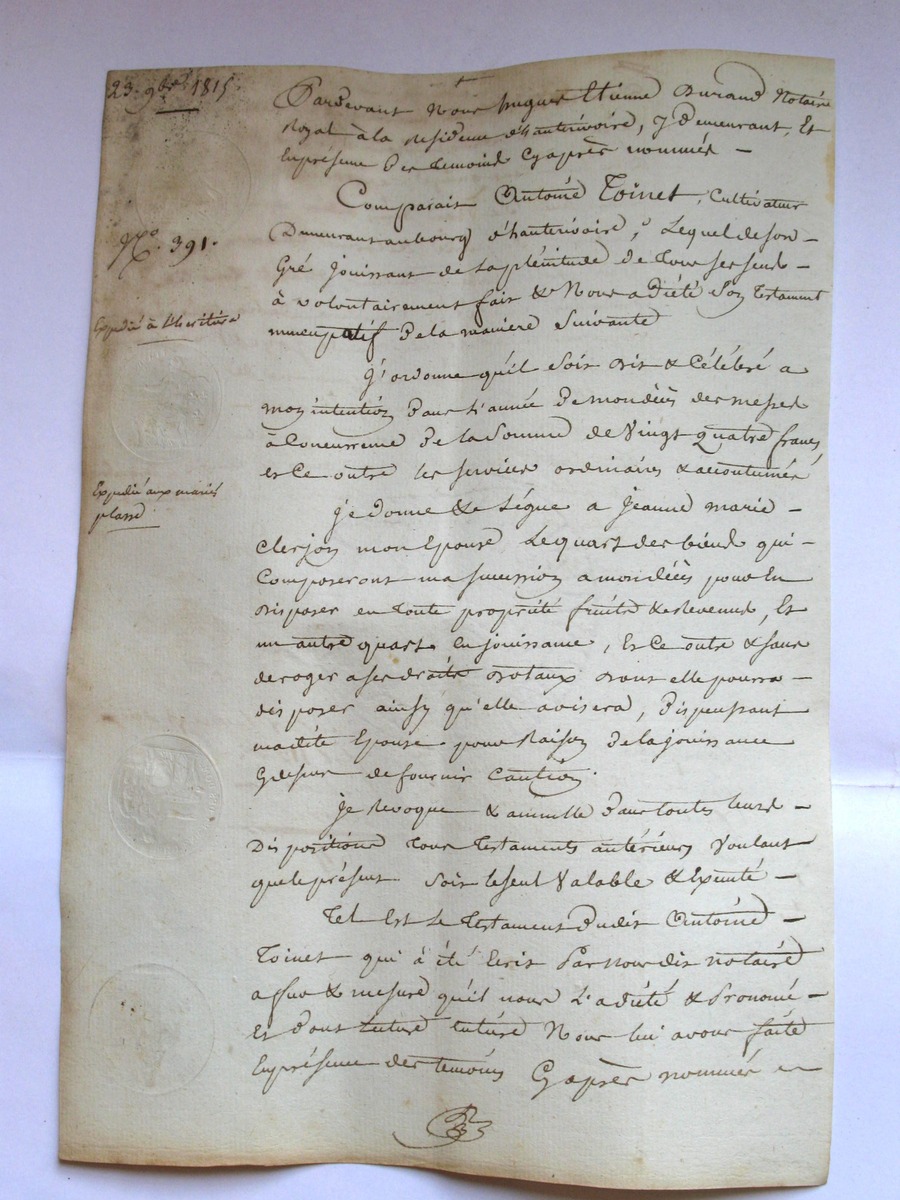 23. 9bre 1815.
No. 391.
Expedié à l'héritière
Expédié aux mariés
plasse
Pardevant Nous hugues Etienne Durand Notaire
Royal à la Residence d'hauterivoire, y Demeurant, Et
En présence Des temoins Cyaprès nommés —
Comparait Antoine Toinet, Cultivateur
Demeurant au bourg d'hauterivoire, Lequel de son —
Gré jouissant de sa plénitude de tous ses sens —
à volontairement fait & Nous a dicté son Testament
nuncupatif de la manière Suivante
J'ordonne qu'il Soit dit & Célébré a
mon intention Dans L'année De mon décès des messes
à Concurrence De la Somme de Vingt quatre francs
et Ce outre les services ordinaires & accoutumés
je donne & Lègue a jeanne marie —
Clerjon mon Epouse Le quart des biens qui —
Composeront ma succession a mon décès pour En
disposer en toute propriété fruits & Revenus, Et
un autre quart En jouissance, Et Ce outre & sans
deroger a ses droits dotaux dont elle pourra —
disposer ainsy qu'elle avisera, Dispensant
madite Epouse pour Raison De la jouissance
Cydessus de fournir Caution.
Je Revoque & annulle Dans toutes leurs —
Dispositions tous testaments antérieurs Voulant
que le présent Soit le seul Valable & Executé —
Tel Est le Testament Dudit Antoine —
Toinet qui à été Ecrit Par Nous dit notaire
a fur & mesure qu'il nous L'a dicté & Prononcé —
Et Dont lecture entière Nous lui avons faite
En présence des temoins Cyaprès nommés —